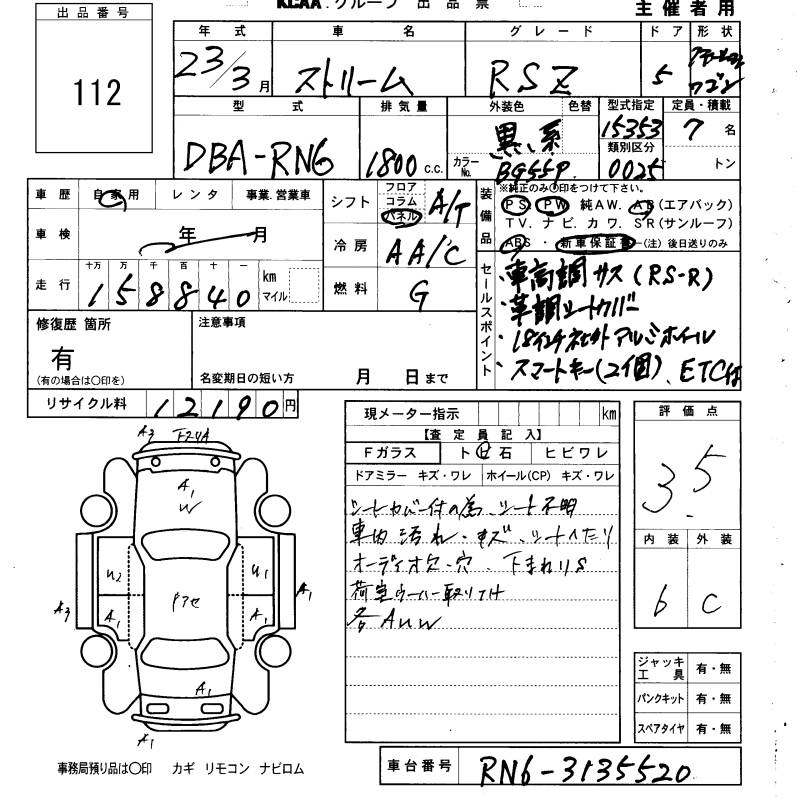 KCAA・グループ 出品票
主催者用
出品番号
112
年式 車名 グレード ドア 形状
23/3月 ストリーム RSZ 5 ワゴン
型式 排気量 外装色 色替 型式指定 定員・積載
DBA-RN6 1800c.c. 黒系 15353 7名
カラーNo. BG55P 類別区分 0025 トン
車歴 自家用 レンタ 事業.営業車
車検 年 月
走行 十万 万 千 百 十 一 km マイル
158840
シフト フロア コラム パネル A/T
冷房 AA/C
燃料 G
装備品
※純正のみ○印をつけて下さい。
PS PW 純AW. AB(エアバック)
TV. ナビ. カワ. SR(サンルーフ)
ABS・新車保証書-(注)後日送りのみ
セールスポイント
・車高調サス(RS-R)
・革調シートカバー
・18インチ社外アルミホイール
・スマートキー(2個)、ETC付
修復歴 箇所
有
(有の場合は○印を)
注意事項
名変期日の短い方 月 日まで
リサイクル料 12190円
現メーター指示 km
【査定員記入】
Fガラス ト石 ヒビワレ
ドアミラー キズ・ワレ ホイール(CP) キズ・ワレ
シートカバー付の為、シート不明
車内汚れ・キズ、シートヘたり
オーディオ欠・穴 下まわりS
各AUW
評価点
3.5
内装 外装
b C
ジャッキ工具 有・無
パンクキット 有・無
スペアタイヤ 有・無
A3
A1
W
U2 U1
A3 A1 A1 A1
A1
A1
事務局預り品は○印 カギ リモコン ナビロム
車台番号 RN6-3135520